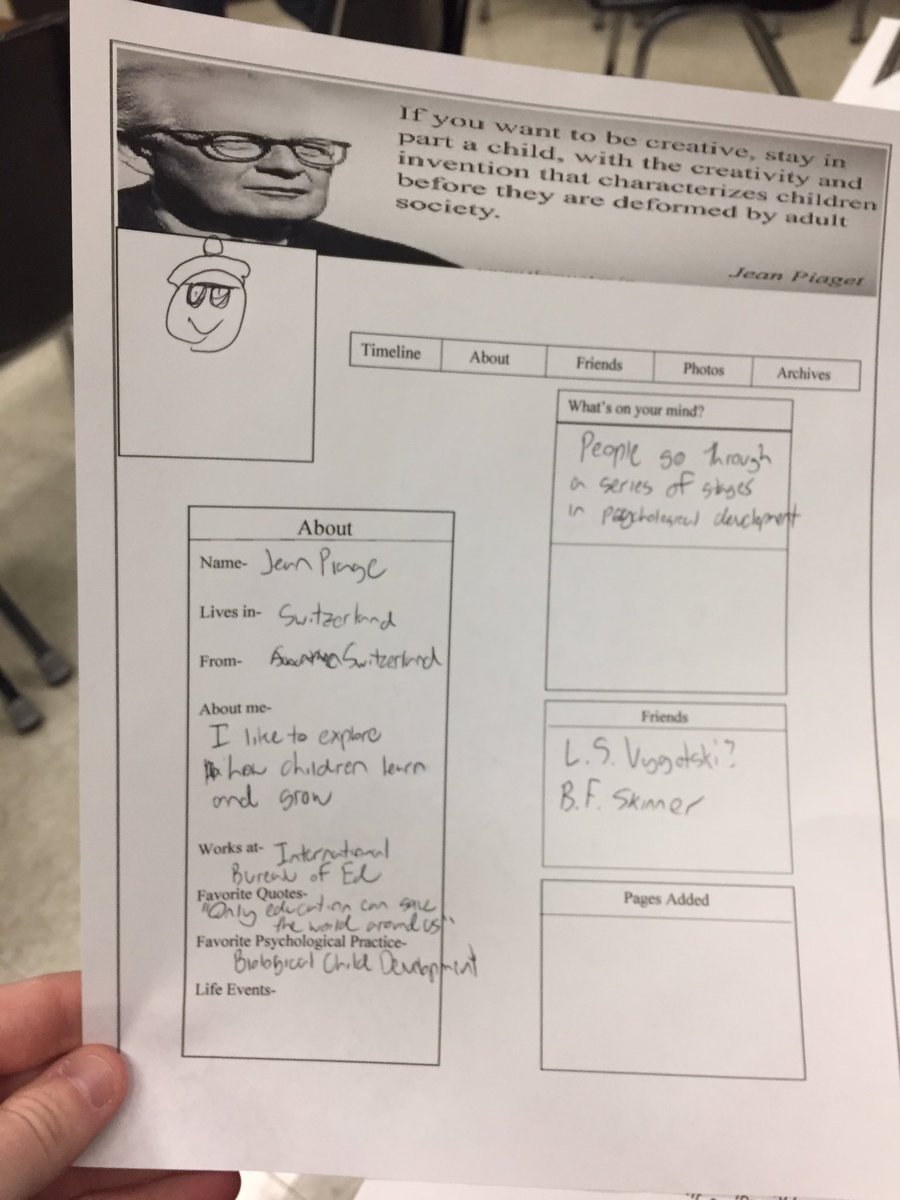 If you want to be creative, stay in
part a child, with the creativity and
invention that characterizes children
before they are deformed by adult
society.
Jean Piaget
Timeline
About
Friends
Photos
Archives
What's on your mind?
People go through
a series of stages
in psychological development
About
Name- Jean Piage
Lives in- Switzerland
From- Switzerland
About me-
I like to explore
how children learn
and grow
Works at- International
Bureau of Ed
Favorite Quotes-
"Only education can save
the world around us"
Favorite Psychological Practice-
Biological Child Development
Life Events-
Friends
L.S. Vygotski?
B.F. Skinner
Pages Added